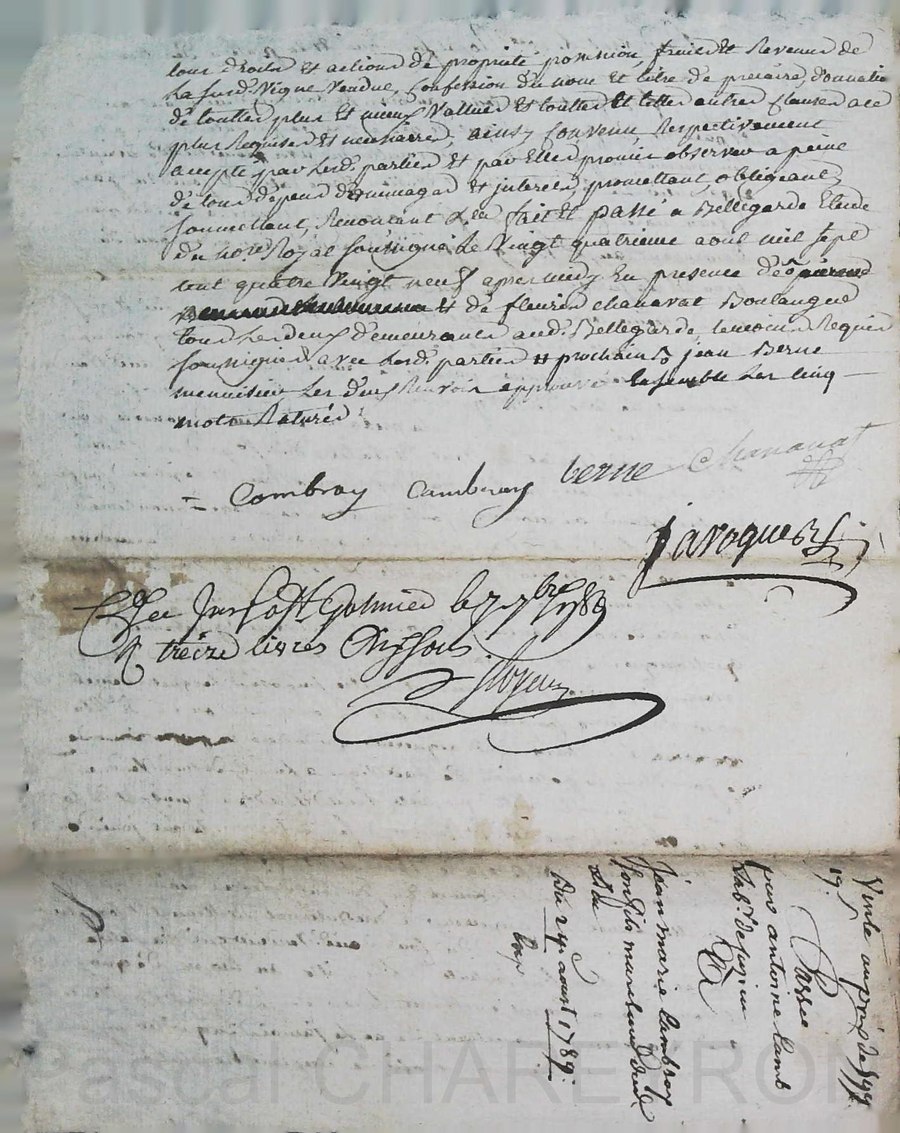 tous droits et actions de propriété possession, fruits et Revenus de
La susd. Vigne Vendue, Confession du nom et titre de précaire, donnatio
de touttes plus et mieux Vallues et touttes et telles autres clauses ace
plus Requises et necessaires, ainsy Convenu Respectivement
accepté par lesd. parties et par Elles promis observer a peine
de tous dépens dommages et interets, promettant, obligeant,
soumettant, Renonçant &ea fait et passé a Bellegarde Etude
du no.re Royal soussigné Le Vingt quatrieme aout mil sept
cent quatre Vingt neuf apres midy En presence de
et de fleurien chanavat Boulanger
tous Les deux demeurants aud. Bellegarde temoins Requis
soussignés avec lesd. parties # prochain jean Berne
menuisier Les deux Renvois approuvé Ensemble Les cinq
mots Raturés
= Combray Cambray Berne Chanavat
Laroque
Galmier le 7 7bre 1789
treize livres sols
Vente au prix de
19.
Passée
par antoine Camb
Lab.r de
a
Jean marie Cambray
son fils marchand de
Du 24 aoust 1789.